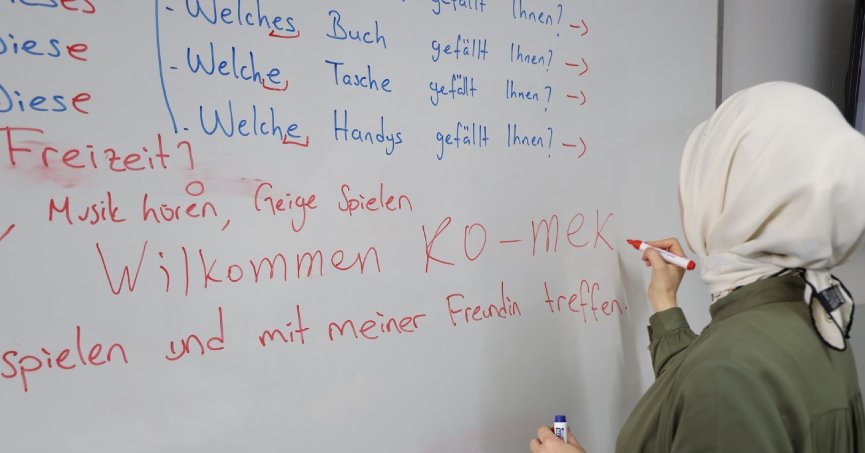 - Welches Buch gefällt Ihnen? ->
Diese - Welche Tasche gefällt Ihnen? ->
Diese - Welche Handys gefällt Ihnen? ->
Freizeit?
Musik hören, Geige Spielen
Wilkommen KO-mek
spielen und mit meiner Freundin treffen.